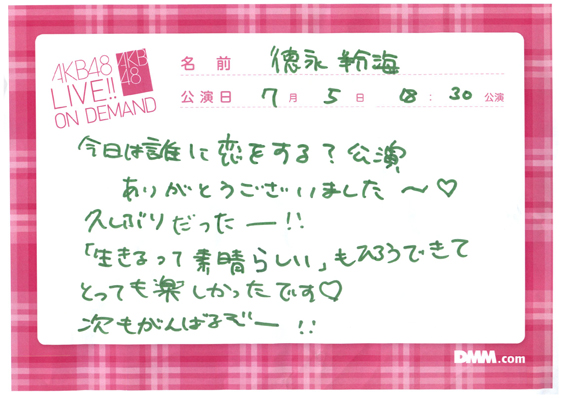 AKB48
LIVE!!
ON DEMAND
AKB
48
名前 徳永羚海
公演日 7月5日 18:30公演
今日は誰に恋をする？公演
ありがとうございました〜♡
久しぶりだったー!!
「生きるって素晴らしい」もひろうできて
とっても楽しかったです♡
次もがんばるぞー!!
DMM.com